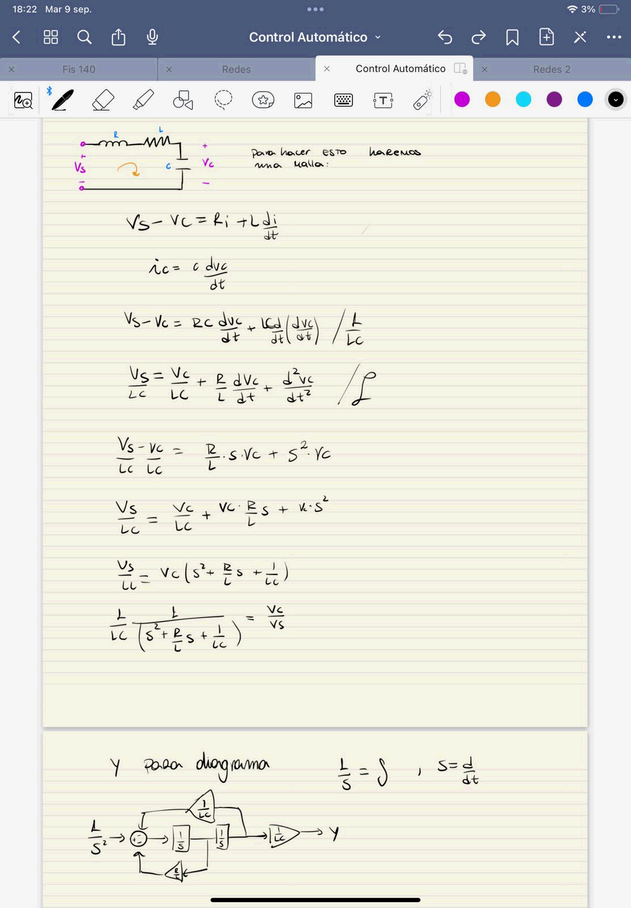 18:22 Mar 9 sep. 3%
Control Automático
Fis 140 Redes Control Automático Redes 2
R L
Vs + - C Vc + -
Para hacer esto haremos
una malla:
Vs - Vc = Ri + L di/dt
ic = c dvc/dt
Vs - Vc = RC dvc/dt + LC d/dt (dvc/dt) / 1/LC
Vs/LC = Vc/LC + R/L dVc/dt + d²vc/dt² / ℒ
Vs/LC - Vc/LC = R/L · s · Vc + s² · Vc
Vs/LC = Vc/LC + Vc · R/L s + Vc · s²
Vs/LC = Vc (s² + R/L s + 1/LC)
1/LC 1/(s² + R/L s + 1/LC) = Vc/Vs
Y para diagrama 1/s = ∫ , s = d/dt
1/LC
1/s² 1/s 1/s 1/LC Y